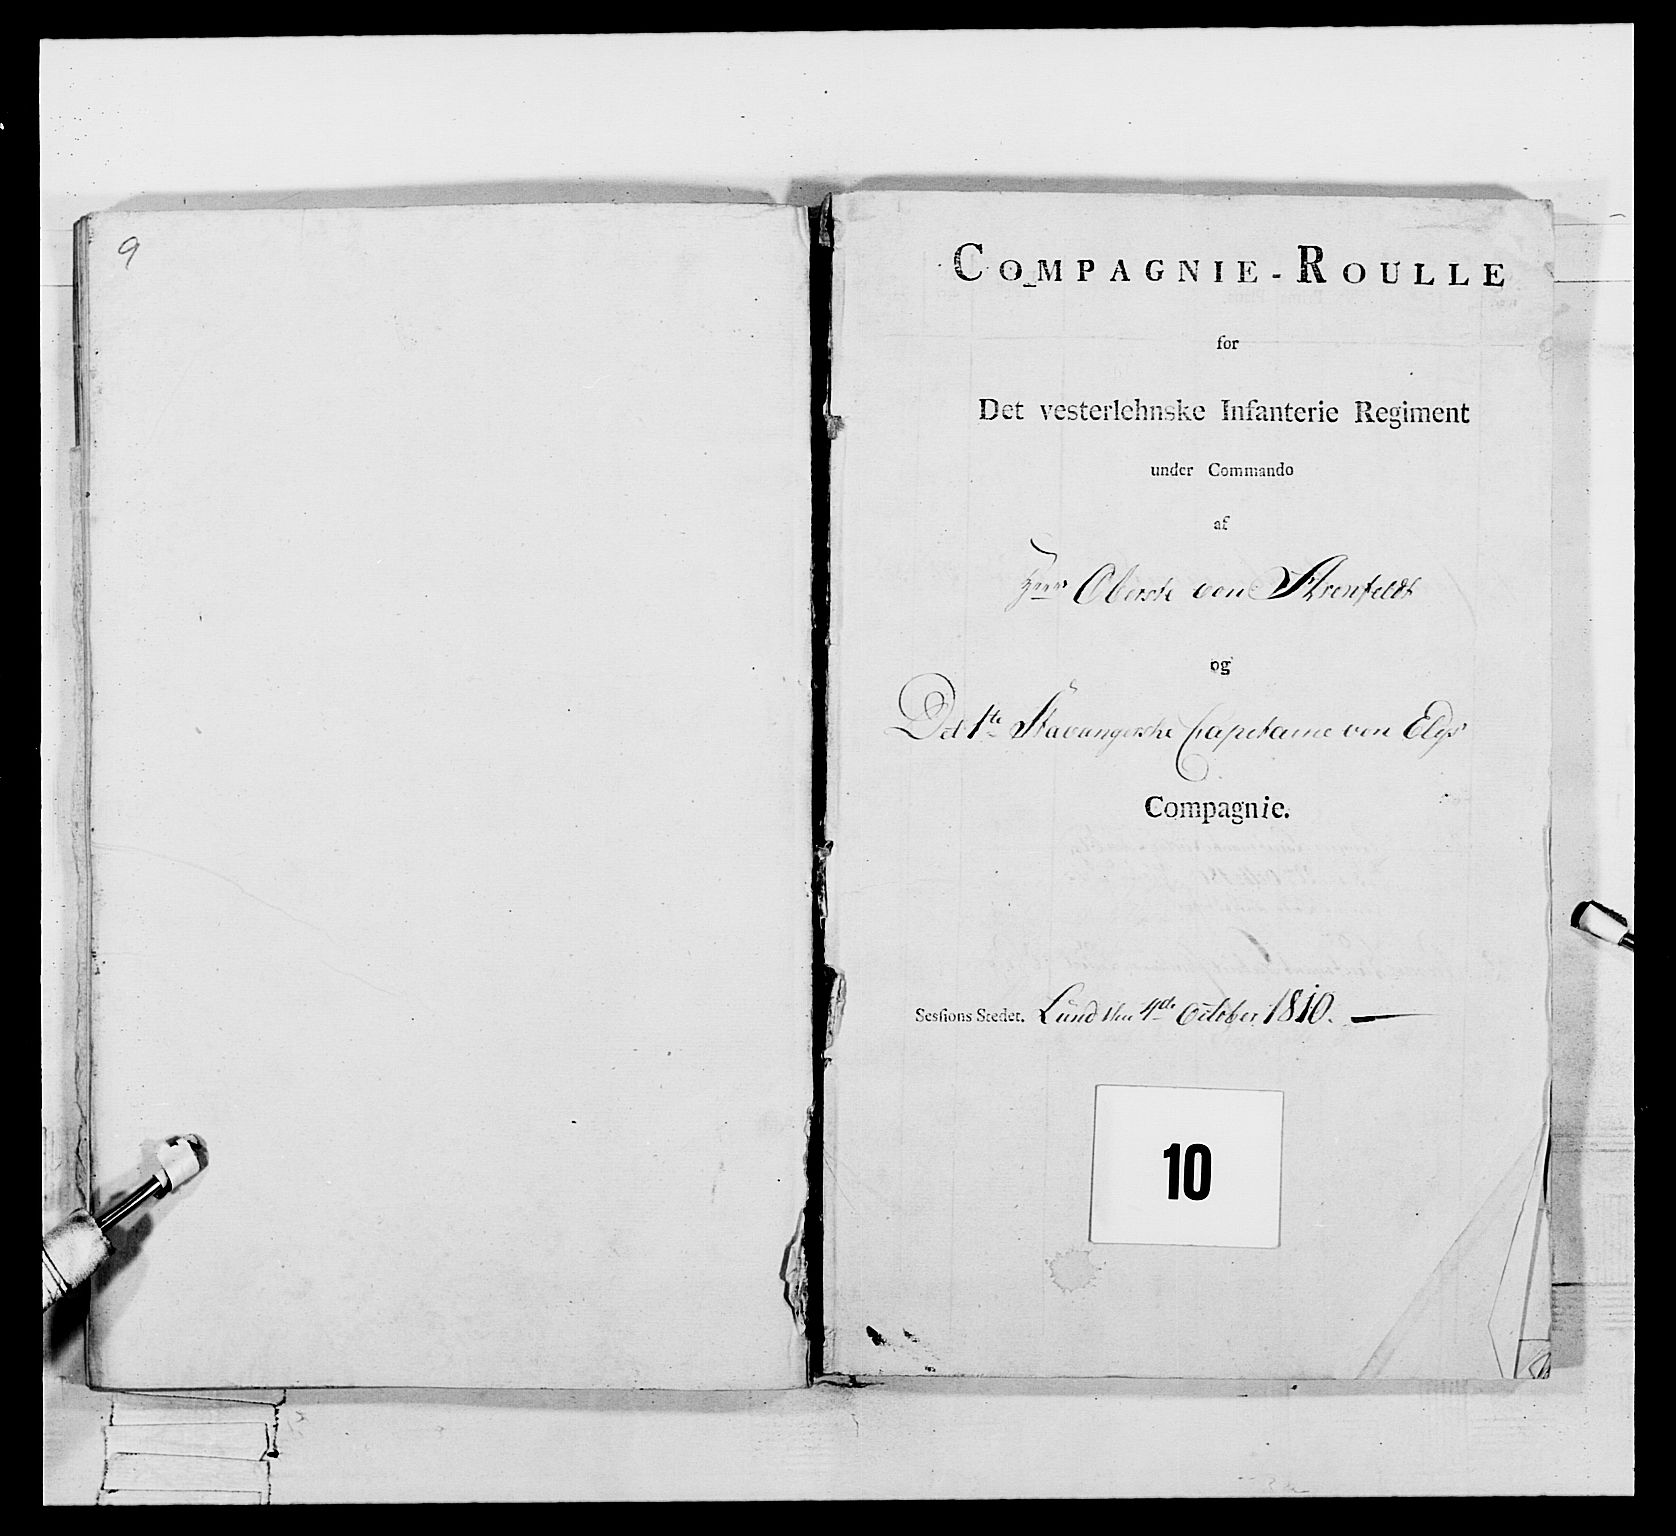 9
COMPAGNIE-ROULLE
for
Det vesterlehnske Infanterie Regiment
under Commando
af
Herr Oberste von Arenfeldt
og
Det 1te Stavangerske Capitaine von Elys
Compagnie.
Sessions Stedet. Lund den 4de October 1810.
10